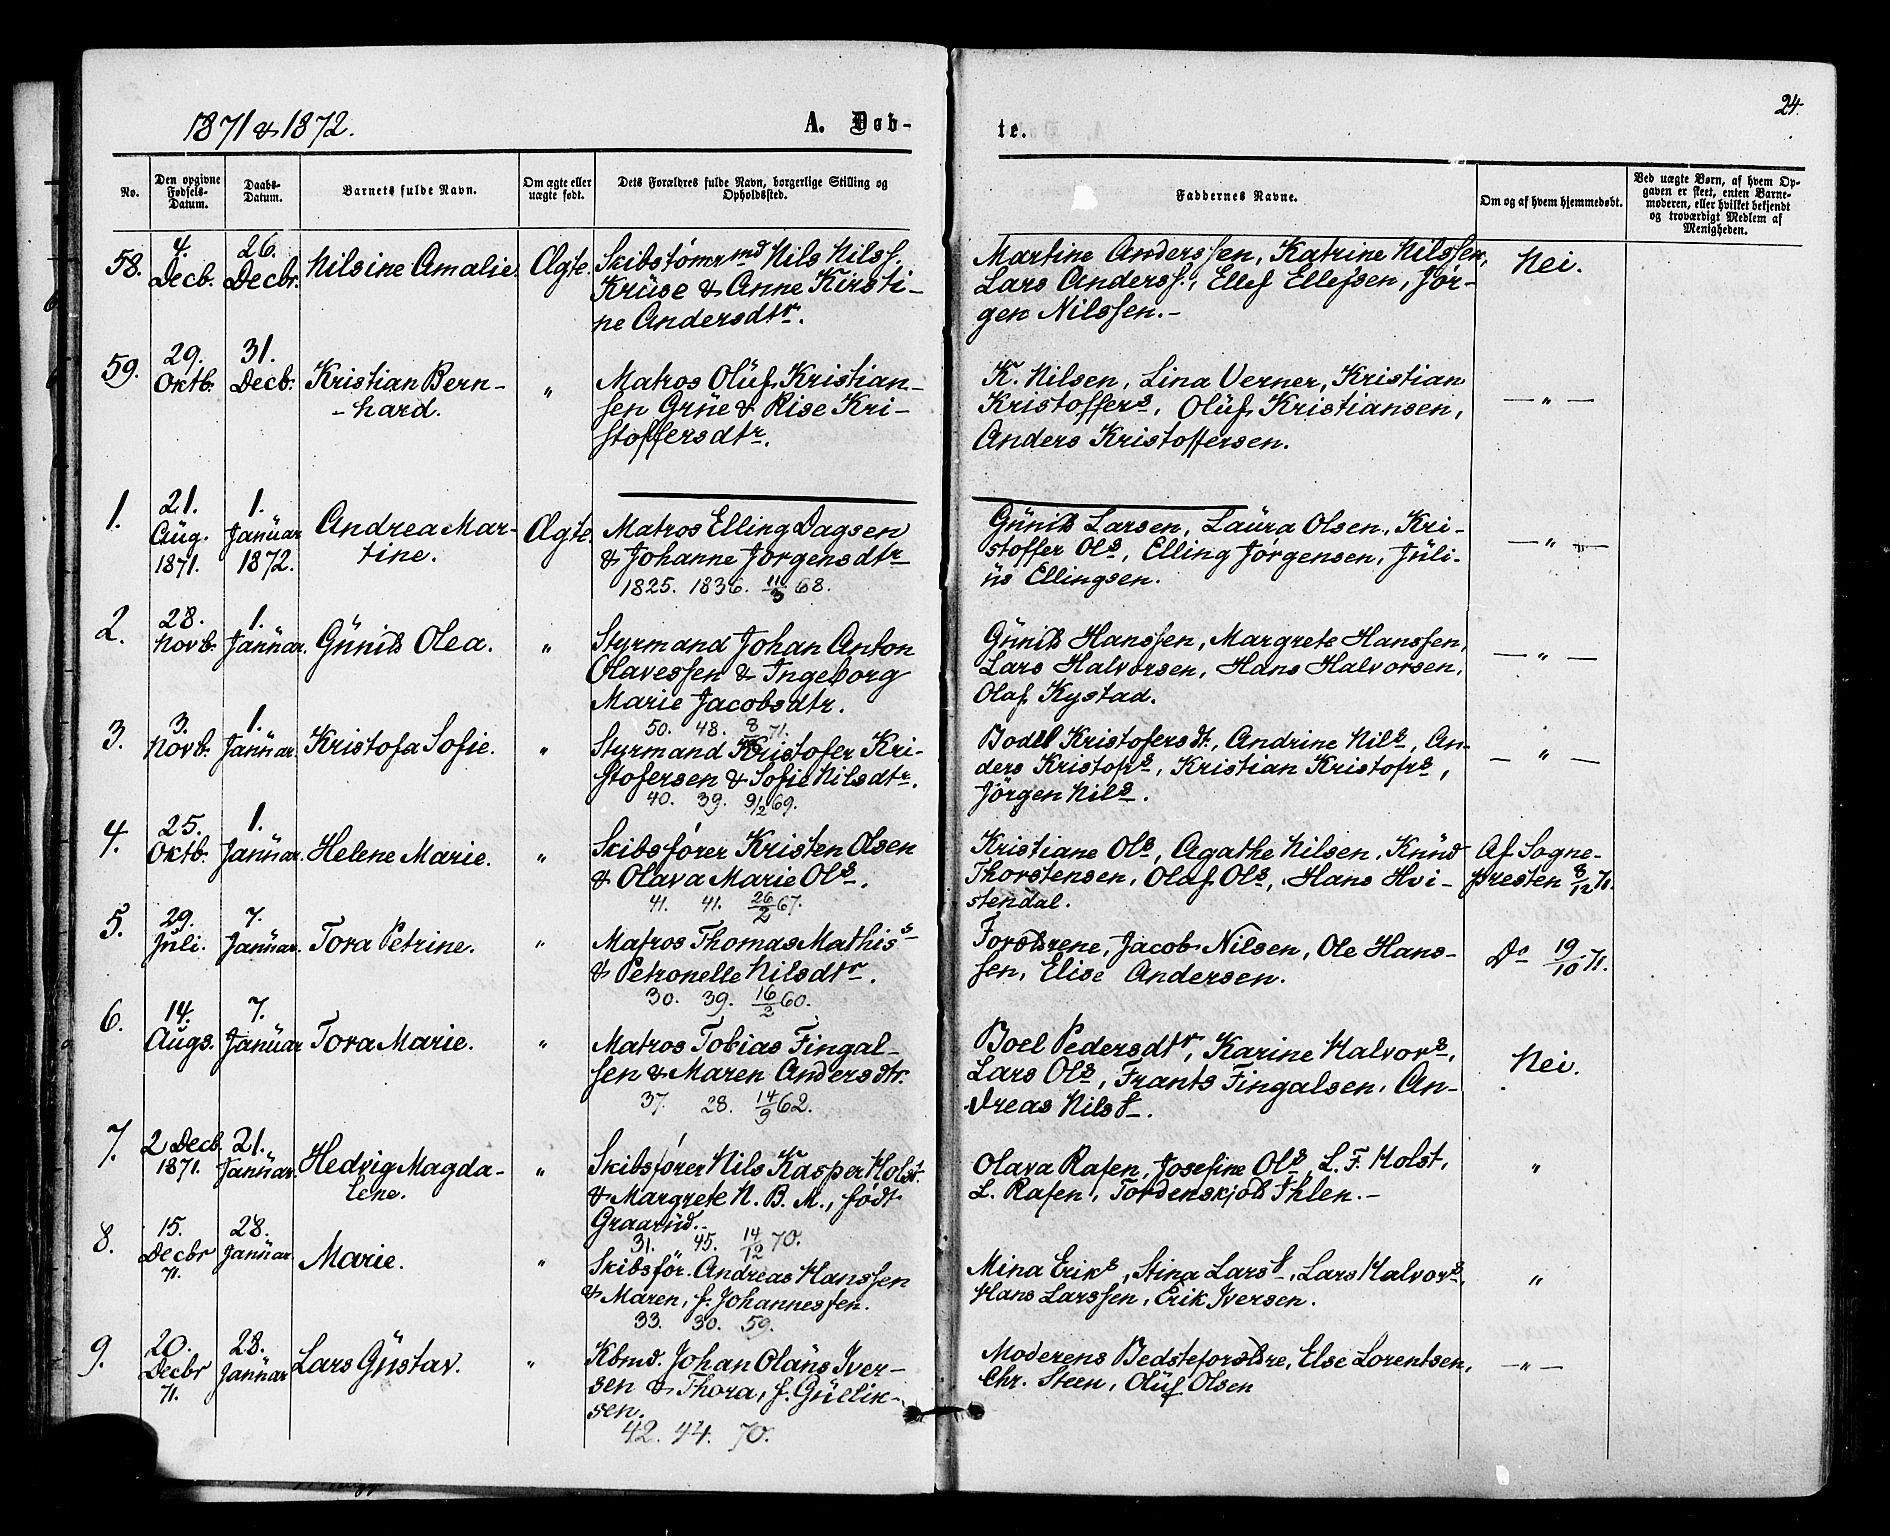 1871 & 1872.
A. Døb-
te.
24.
No.
Den opgivne Fødsels-Datum.
Daabs-Datum.
Barnets fulde Navn.
Om ægte eller uægte født.
Dets Forældres fulde Navn, borgerlige Stilling og Opholdssted.
Faddernes Navne.
Om og af hvem hjemmedøbt.
Ved uægte Børn, af hvem Op-
gaven er skeet, enten Barne-
moderen, eller hvilket bekjendt
og troværdigt Medlem af
Menigheden.
58. 4. Decb. 26. Decbr. Nilsine Amalie. Ægte. Skibstømrmd Nils Nilss.
Krüse & Anne Kirsti-
ne Andersdtr.
Martine Anderssen, Katrine Nilssen,
Lars Anderss., Ellef Ellefsen, Jør-
gen Nilssen.-
Nei.
59. 29. Oktb. 31. Decb. Kristian Bern-
-hard.
" Matros Olüf Kristian-
sen Grüe & Rise Kri-
stoffersdtr.
K. Nilsen, Lina Verner, Kristian
Kristoffers, Olüf Kristiansen,
Anders Kristoffersen.
— " —
1. 21. Aüg. 1871. 1. Janüar 1872. Andrea Mar-
tine.
Ægte. Matros Elling Dagsen
& Johanne Jørgensdtr
1825. 1836. 11/3 68.
Günild Larsen, Laüra Olsen, Kri-
stoffer Ols, Elling Jørgensen, Jüli-
üs Ellingsen.
— " —
2. 28. Novb. 1. Janüar. Günild Olea.
" Styrmand Johan Anton
Olavessen & Ingeborg
Marie Jacobsdtr.
50. 48. 8/ 71.
Günild Hanssen, Margrete Hanssen,
Lars Halvorsen, Hans Halvorsen,
Olaf Kystad.
— " —
3. 3. Novb. 1. Janüar. Kristofa Sofie.
" Styrmand Kristofer Kri-
stofersen & Sofie Nilsdtr.
40. 39. 9/12 69.
Bodil Kristofersdt, Andrine Nils, An-
ders Kristofrs, Kristian Kristofrs,
Jörgen Nils.
— " —
4. 25. Oktb. 1. Janüar. Helene Marie.
" Skibsfører Kristen Olsen
& Olava Marie Ols.
41. 41. 26/2 67.
Kristiane Ols, Agathe Nilsen, Knüd
Thorstensen, Olaf Ols, Hans Hvi-
stendal.
Af Sogne-
presten 8/12 71.
5. 29. Juli. 7. Janüar. Tora Petrine.
" Matros Thomas Mathis
& Petronelle Nilsdtr.
30. 39. 16/2 60.
Forældrene, Jacob Nilsen, Ole Hans-
sen, Elise Andersen.
Do 19/10 71.
6. 14. Aügs. 7. Janüar Tora Marie.
" Matros Tobias Fingal-
sen & Maren Andersdtr.
37. 28. 14/9 62.
Boel Pedersdtr, Karine Halvors,
Lars Ols, Frants Fingalsen, An-
dreas Nilss.
Nei.
7. 2 Decb. 1871. 21. Janüar. Hedvig Magda-
lene.
" Skibsfører Nils Kasper Holst
& Margrete N. B. M., født
Graarüd.
31. 45. 14/12 70.
Olava Rafen, Josefine Ols, L. F. Holst,
L. Rafen, Tordenskjold Ihlen.-
"
8. 15. Decbr 71. 28. Janüar Marie.
" Skibsfør. Andreas Hanssen
& Maren, f. Johannessen.
33. 30. 59.
Mina Eriks, Stina Larss, Lars Halvors,
Hans Larssen, Erik Iversen.
"
9. 20. Decbr 71. 28. Janüar Lars Güstav.
" Kbmd. Johan Olaüs Iver-
sen & Thora, f. Güllik-
sen.
42. 44. 70.
Moderens Bedsteforældre, Else Lorentsen,
Chr. Steen, Olüf Olsen
— " —